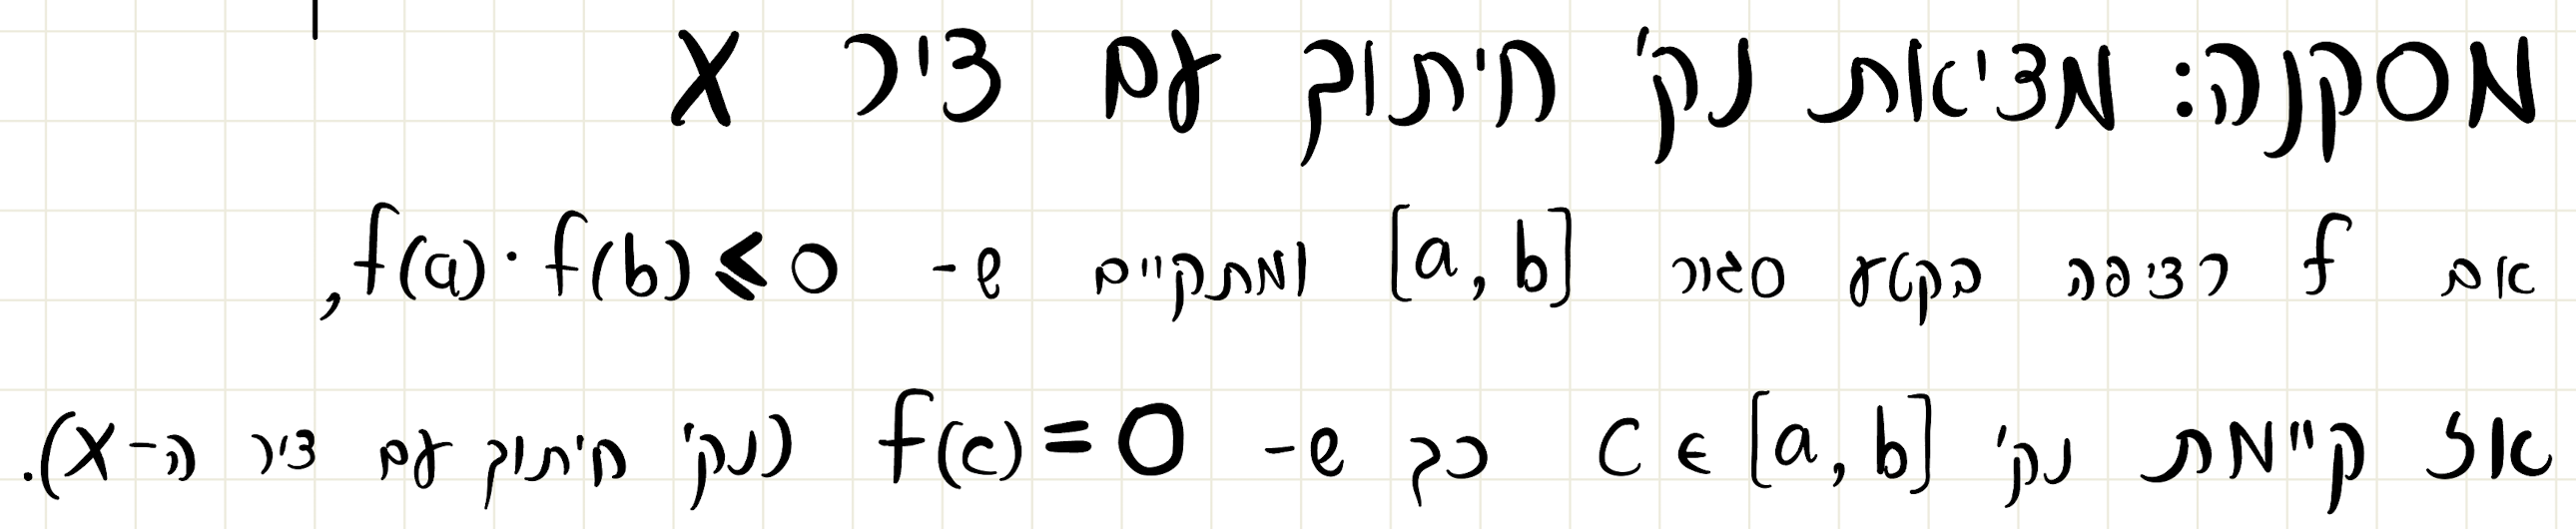 מסקנה: מציאת נק' חיתוך עם ציר X
אם f רציפה בקטע סגור [a, b] ומתקיים ש- f(a)·f(b)⩽0,
אז קיימת נק' c ∈ [a, b] כך ש- f(c)=0 (נק' חיתוך עם ציר ה-X).